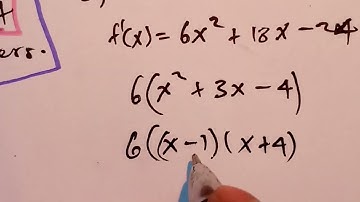 ers.
f'(x) = 6x² + 18x - 24
6(x² + 3x - 4)
6((x - 1)(x + 4)